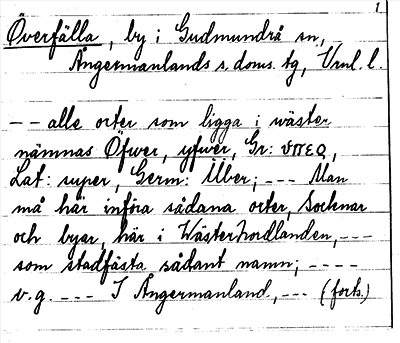 1.
Överfälla, by i Gudmundrå sn,
Ångermanlands s. doms. tg, Vrnl. l.
-- alle orter som ligga i wäster
nämnas Öfwer, yfwer, Gr: ὑπερ,
Lat: super, Germ: Über; --- Man
må här införa sådana orter, Socknar
och byar, här i Wästerhordlanden, ---
som stadfästa sådant namn; ----
v. g. --- I Ångermanland, --- (forts.)